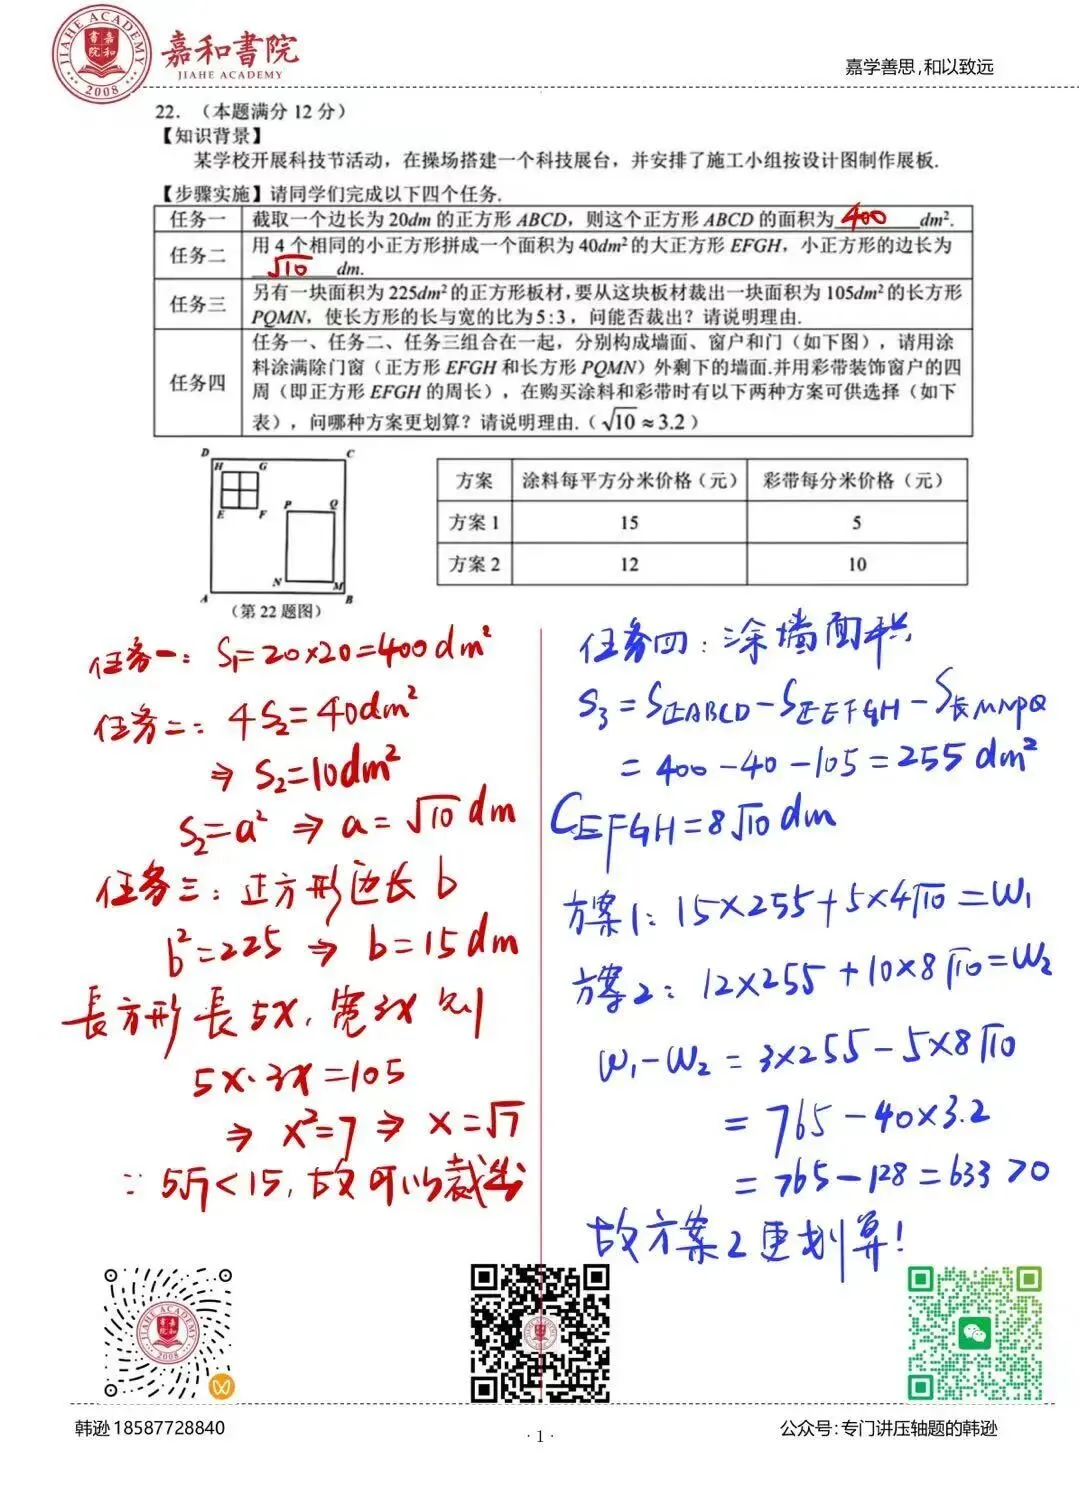 嘉和書院
JIAHE ACADEMY
嘉学善思,和以致远
22. （本题满分 12 分）
【知识背景】
某学校开展科技节活动，在操场搭建一个科技展台，并安排了施工小组按设计图制作展板.
【步骤实施】请同学们完成以下四个任务.
任务一 截取一个边长为 20dm 的正方形 ABCD，则这个正方形 ABCD 的面积为 400 dm².
任务二 用 4 个相同的小正方形拼成一个面积为 40dm² 的大正方形 EFGH，小正方形的边长为
√10 dm.
任务三 另有一块面积为 225dm² 的正方形板材，要从这块板材裁出一块面积为 105dm² 的长方形
PQMN，使长方形的长与宽的比为 5:3，问能否裁出？请说明理由.
任务四 任务一、任务二、任务三组合在一起，分别构成墙面、窗户和门（如下图），请用涂
料涂满除门窗（正方形 EFGH 和长方形 PQMN）外剩下的墙面.并用彩带装饰窗户的四
周（即正方形 EFGH 的周长），在购买涂料和彩带时有以下两种方案可供选择（如下
表），问哪种方案更划算？请说明理由.（√10≈3.2）
D C
H G
E F
P Q
N M
A B
（第 22 题图）
方案 涂料每平方分米价格（元） 彩带每分米价格（元）
方案 1 15 5
方案 2 12 10
任务一: S₁=20×20=400dm²
任务二: 4S₂=40dm²
⇒ S₂=10dm²
S₂=a² ⇒ a=√10 dm
任务三: 正方形边长 b
b²=225 ⇒ b=15dm
長方形長5x, 宽3x 则
5x·3x=105
⇒ x²=7 ⇒ x=√7
∵ 5√7<15, 故可以裁出
任务四: 涂墙面积
S₃=S正ABCD-S正EFGH-S长MNPQ
=400-40-105=255dm²
CEFGH=8√10dm
方案1: 15×255+5×4√10=W₁
方案2: 12×255+10×8√10=W₂
W₁-W₂=3×255-5×8√10
=765-40×3.2
=765-128=633>0
故方案2更划算!
韩逊 18587728840
·1·
公众号:专门讲压轴题的韩逊